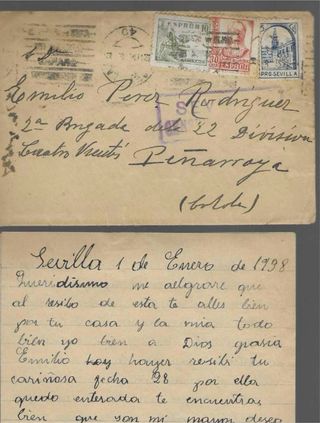 ESPAÑA
PRO-SEVILLA
Emilio Perez Rodriguez
2ª Brigada de la 22 Division
Cuatro Vientos
Peñarroya
(Cordoba)
Sevilla 1 de Enero de 1998
Queridisimo me aelgrare que
al resibo de esta te alles bien
por tu casa y la mia todo
bien yo bien a Dios grasia
Emilio hoy hayer resibi tu
cariñosa fecha 28 por ella
quedo enterada te encuentras
bien que son mi mayor deseo